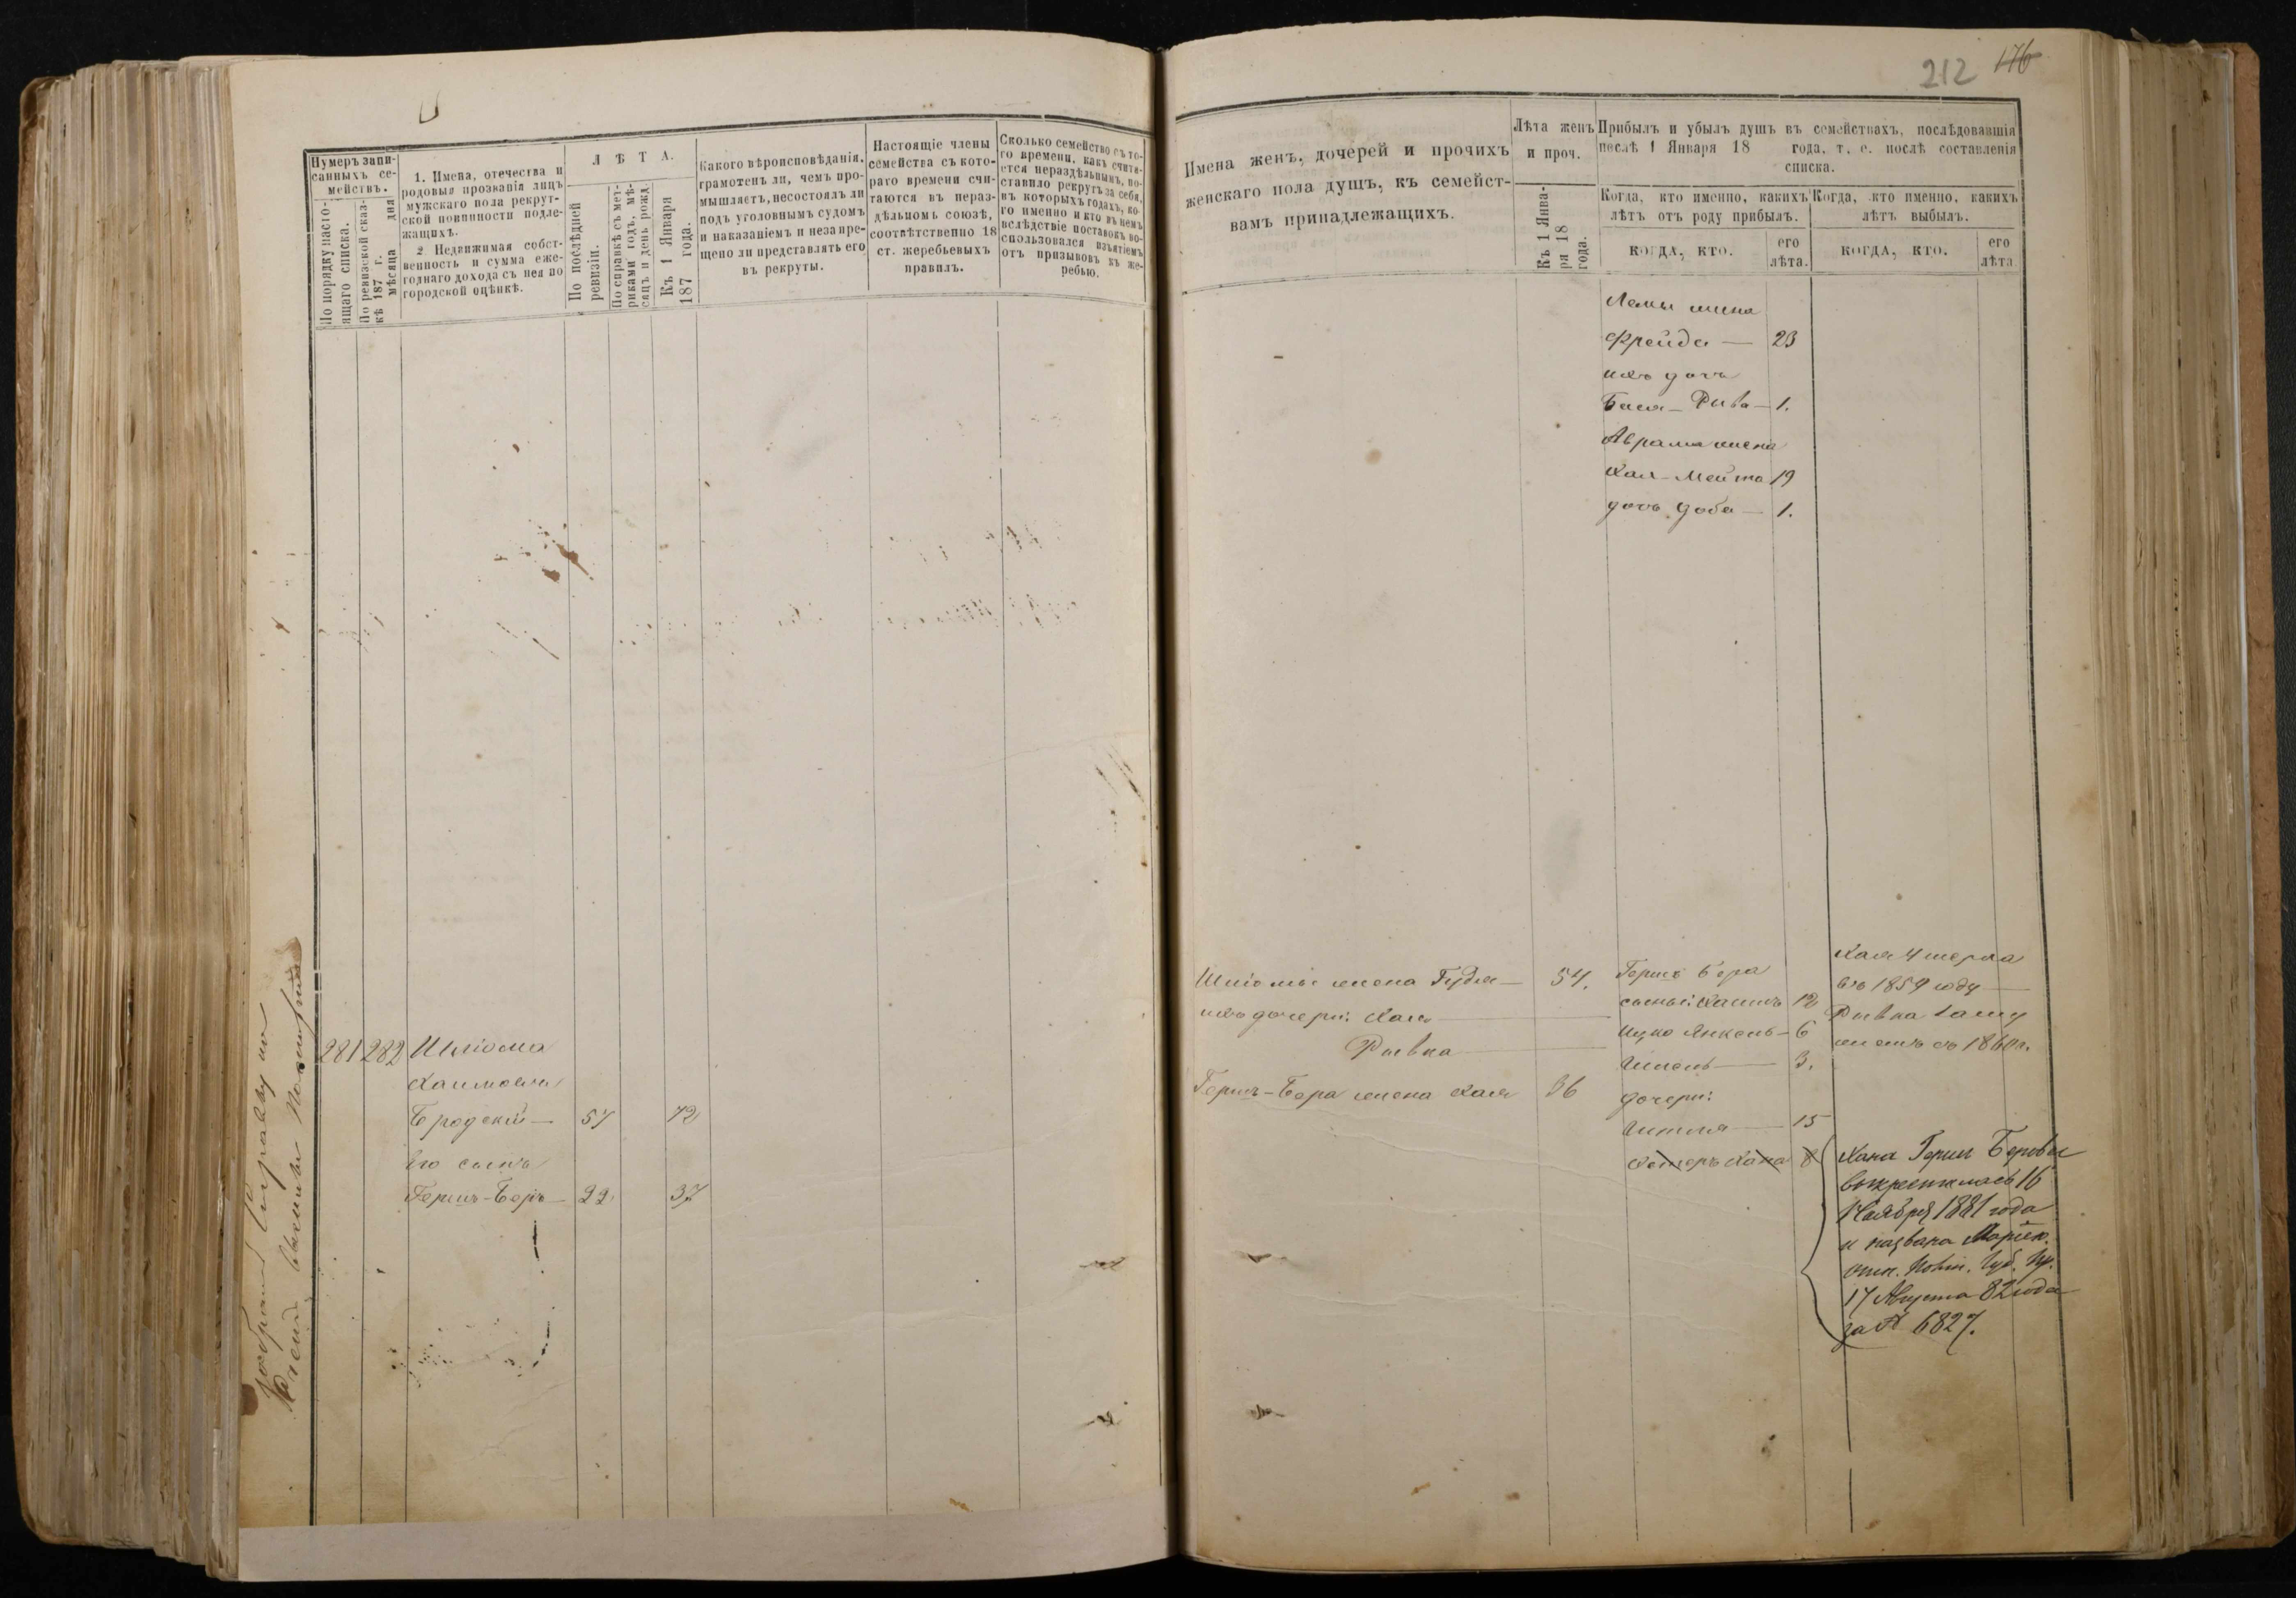 Нумеръ запи-
санныхъ се-
мействъ.
По порядку насто-
ящаго списка.
По ревизской сказ-
кѣ 187 г.
мѣсяца дня
1. Имена, отечества и
родовыя прозванія лицъ
мужскаго пола рекрут-
ской повинности подле-
жащихъ.
2. Недвижимая собст-
венность и сумма еже-
годнаго дохода съ нея по
городской оцѣнкѣ.
Л Ѣ Т А.
По послѣдней
ревизіи.
По справкѣ съ мет-
риками годъ, мѣ-
сяцъ и день рожд
Къ 1 Января
187 года.
Какого вѣроисповѣданія,
грамотенъ ли, чемъ про-
мышляетъ, несостоялъ ли
подъ уголовнымъ судомъ
и наказаніемъ и незапре-
щено ли представлять его
въ рекруты.
Настоящіе члены
семейства съ кото-
раго времени счи-
таются въ нераз-
дѣльномъ союзѣ,
соотвѣтственно 18
ст. жеребьевыхъ
правилъ.
Сколько семейство съ то-
го времени, какъ счита-
ется нераздѣльнымъ, по-
ставило рекрутъ за себя,
въ которыхъ годахъ, ко-
го именно и кто въ немъ
вслѣдствіе поставокъ во-
спользовался взъятіемъ
отъ призывовъ къ же-
ребью.
281 282 Шліома
Хаимовъ
Бродскій — 57 72
Его сынъ
Гершъ-Беръ — 22 37
212 176
Имена женъ, дочерей и прочихъ
женскаго пола душъ, къ семейст-
вамъ принадлежащихъ.
Лѣта женъ
и проч.
Къ 1 Янва-
ря 18
года.
Прибылъ и убылъ душъ въ семействахъ, послѣдовавшія
послѣ 1 Января 18 года, т. е. послѣ составленія
списка.
Когда, кто именно, какихъ
лѣтъ отъ роду прибылъ.
Когда, кто именно, какихъ
лѣтъ выбылъ.
КОГДА, КТО.
его
лѣта.
КОГДА, КТО.
его
лѣта.
жена
Фрейда — 23
ихъ дочь
Бася-Рива — 1.
Аврама жена
Хая-Мейта 19
дочь Доба — 1.
Шліомы жена Гудля — 54.
ихъ дочери: Хая —
Ривка —
Гершъ-Бера жена Хая 36
Гершъ Бера
сыны: Хаимъ 12
Ицко Янкель — 6
— 3.
дочери:
— 15
Эстеръ Хана 8
Хая умерла
въ 1859 году —
Ривка замуж
съ 1860 г.
Хана Герш Беровна
окрестилась 16
Ноября 1881 года
и названа Маріею.
отн. Губ. Пр.
17 Августа 82 года
за № 6827.